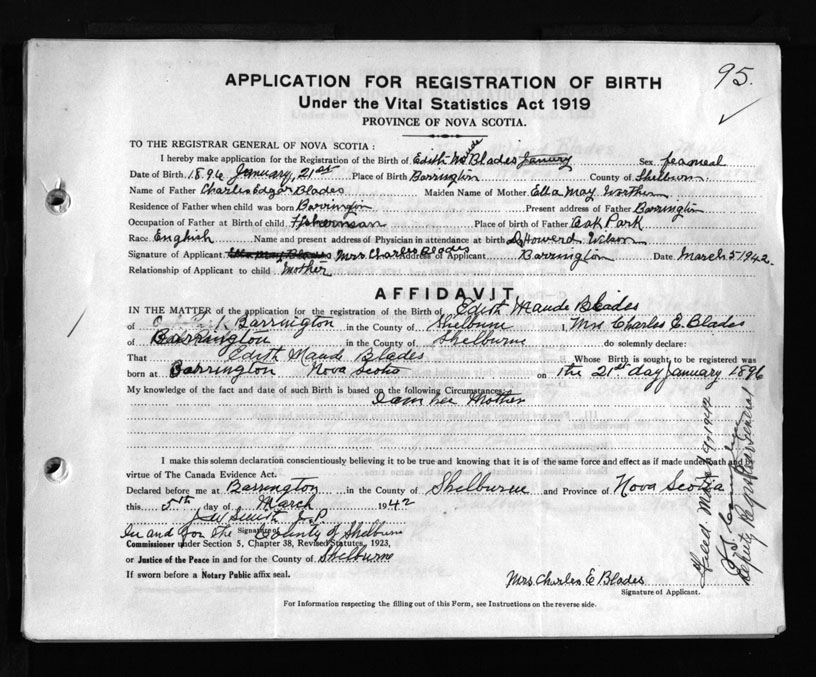 95.
APPLICATION FOR REGISTRATION OF BIRTH
Under the Vital Statistics Act 1919
PROVINCE OF NOVA SCOTIA.
TO THE REGISTRAR GENERAL OF NOVA SCOTIA :
I hereby make application for the Registration of the Birth of Edith Maude Blades January Sex feameal
Date of Birth 1896 January, 21st Place of Birth Barrington County of Shelburn
Name of Father Charles Edgar Blades Maiden Name of Mother Ella May
Residence of Father when child was born Barrington Present address of Father Barrington
Occupation of Father at Birth of child Fisherman Place of birth of Father Oak Park
Race English Name and present address of Physician in attendance at birth Howerd Wilson
Signature of Applicant Ella May Blades Mrs Charles Blades Address of Applicant Barrington Date March 5 1942
Relationship of Applicant to child mother
AFFIDAVIT
IN THE MATTER of the application for the registration of the Birth of Edith Maude Blades
of Barrington in the County of Shelburne I, Mrs Charles E. Blades
of Barrington in the County of Shelburne do solemnly declare:
That Edith Maude Blades Whose Birth is sought to be registered was
born at Barrington Nova Scotia on the 21st day January 1896
My knowledge of the fact and date of such Birth is based on the following Circumstances:
I am her Mother
I make this solemn declaration conscientiously believing it to be true and knowing that it is of the same force and effect as if made under oath and by
virtue of The Canada Evidence Act.
Declared before me at Barrington in the County of Shelburne and Province of Nova Scotia
this 5th day of March 1942
J.P.
In and for the County of Shelburne
Signature of
Commissioner under Section 5, Chapter 38, Revised Statutes, 1923,
or Justice of the Peace in and for the County of Shelburne
If sworn before a Notary Public affix seal.
Mrs. Charles E Blades
Signature of Applicant.
For Information respecting the filling out of this Form, see Instructions on the reverse side.
Filed. March 9, 1942
Deputy Registrar General